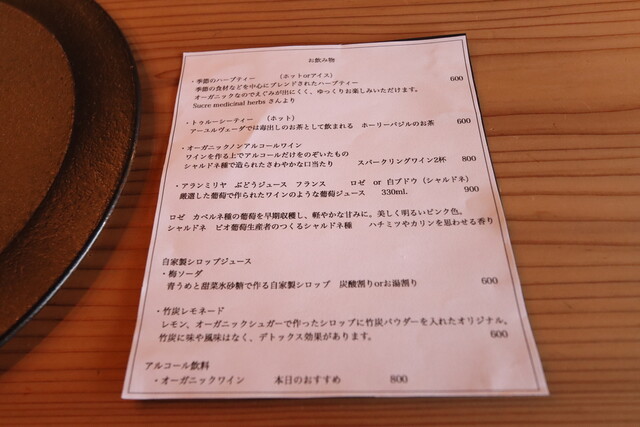 お飲み物
・季節のハーブティー　（ホットorアイス）　600
季節の食材などを中心にブレンドされたハーブティー
オーガニックなのでえぐみが出にくく、ゆっくりお楽しみいただけます。
Sucre medicinal herbs さんより
・トゥルーシーティー　（ホット）
アーユルヴェーダでは毒出しのお茶として飲まれる　ホーリーバジルのお茶　600
・オーガニックノンアルコールワイン
ワインを作る上でアルコールだけをのぞいたもの
シャルドネ種で造られたさわやかな口当たり　スパークリングワイン2杯　800
・アランミリヤ　ぶどうジュース　フランス　ロゼ　or　白ブドウ（シャルドネ）
厳選した葡萄で作られたワインのような葡萄ジュース　330ml.　900
ロゼ　カベルネ種の葡萄を早期収穫し、軽やかな甘みに。美しく明るいピンク色。
シャルドネ　ビオ葡萄生産者のつくるシャルドネ種　ハチミツやカリンを思わせる香り
自家製シロップジュース
・梅ソーダ
青うめと甜菜氷砂糖で作る自家製シロップ　炭酸割りorお湯割り　600
・竹炭レモネード
レモン、オーガニックシュガーで作ったシロップに竹炭パウダーを入れたオリジナル。
竹炭に味や風味はなく、デトックス効果があります。　600
アルコール飲料
・オーガニックワイン　本日のおすすめ　800